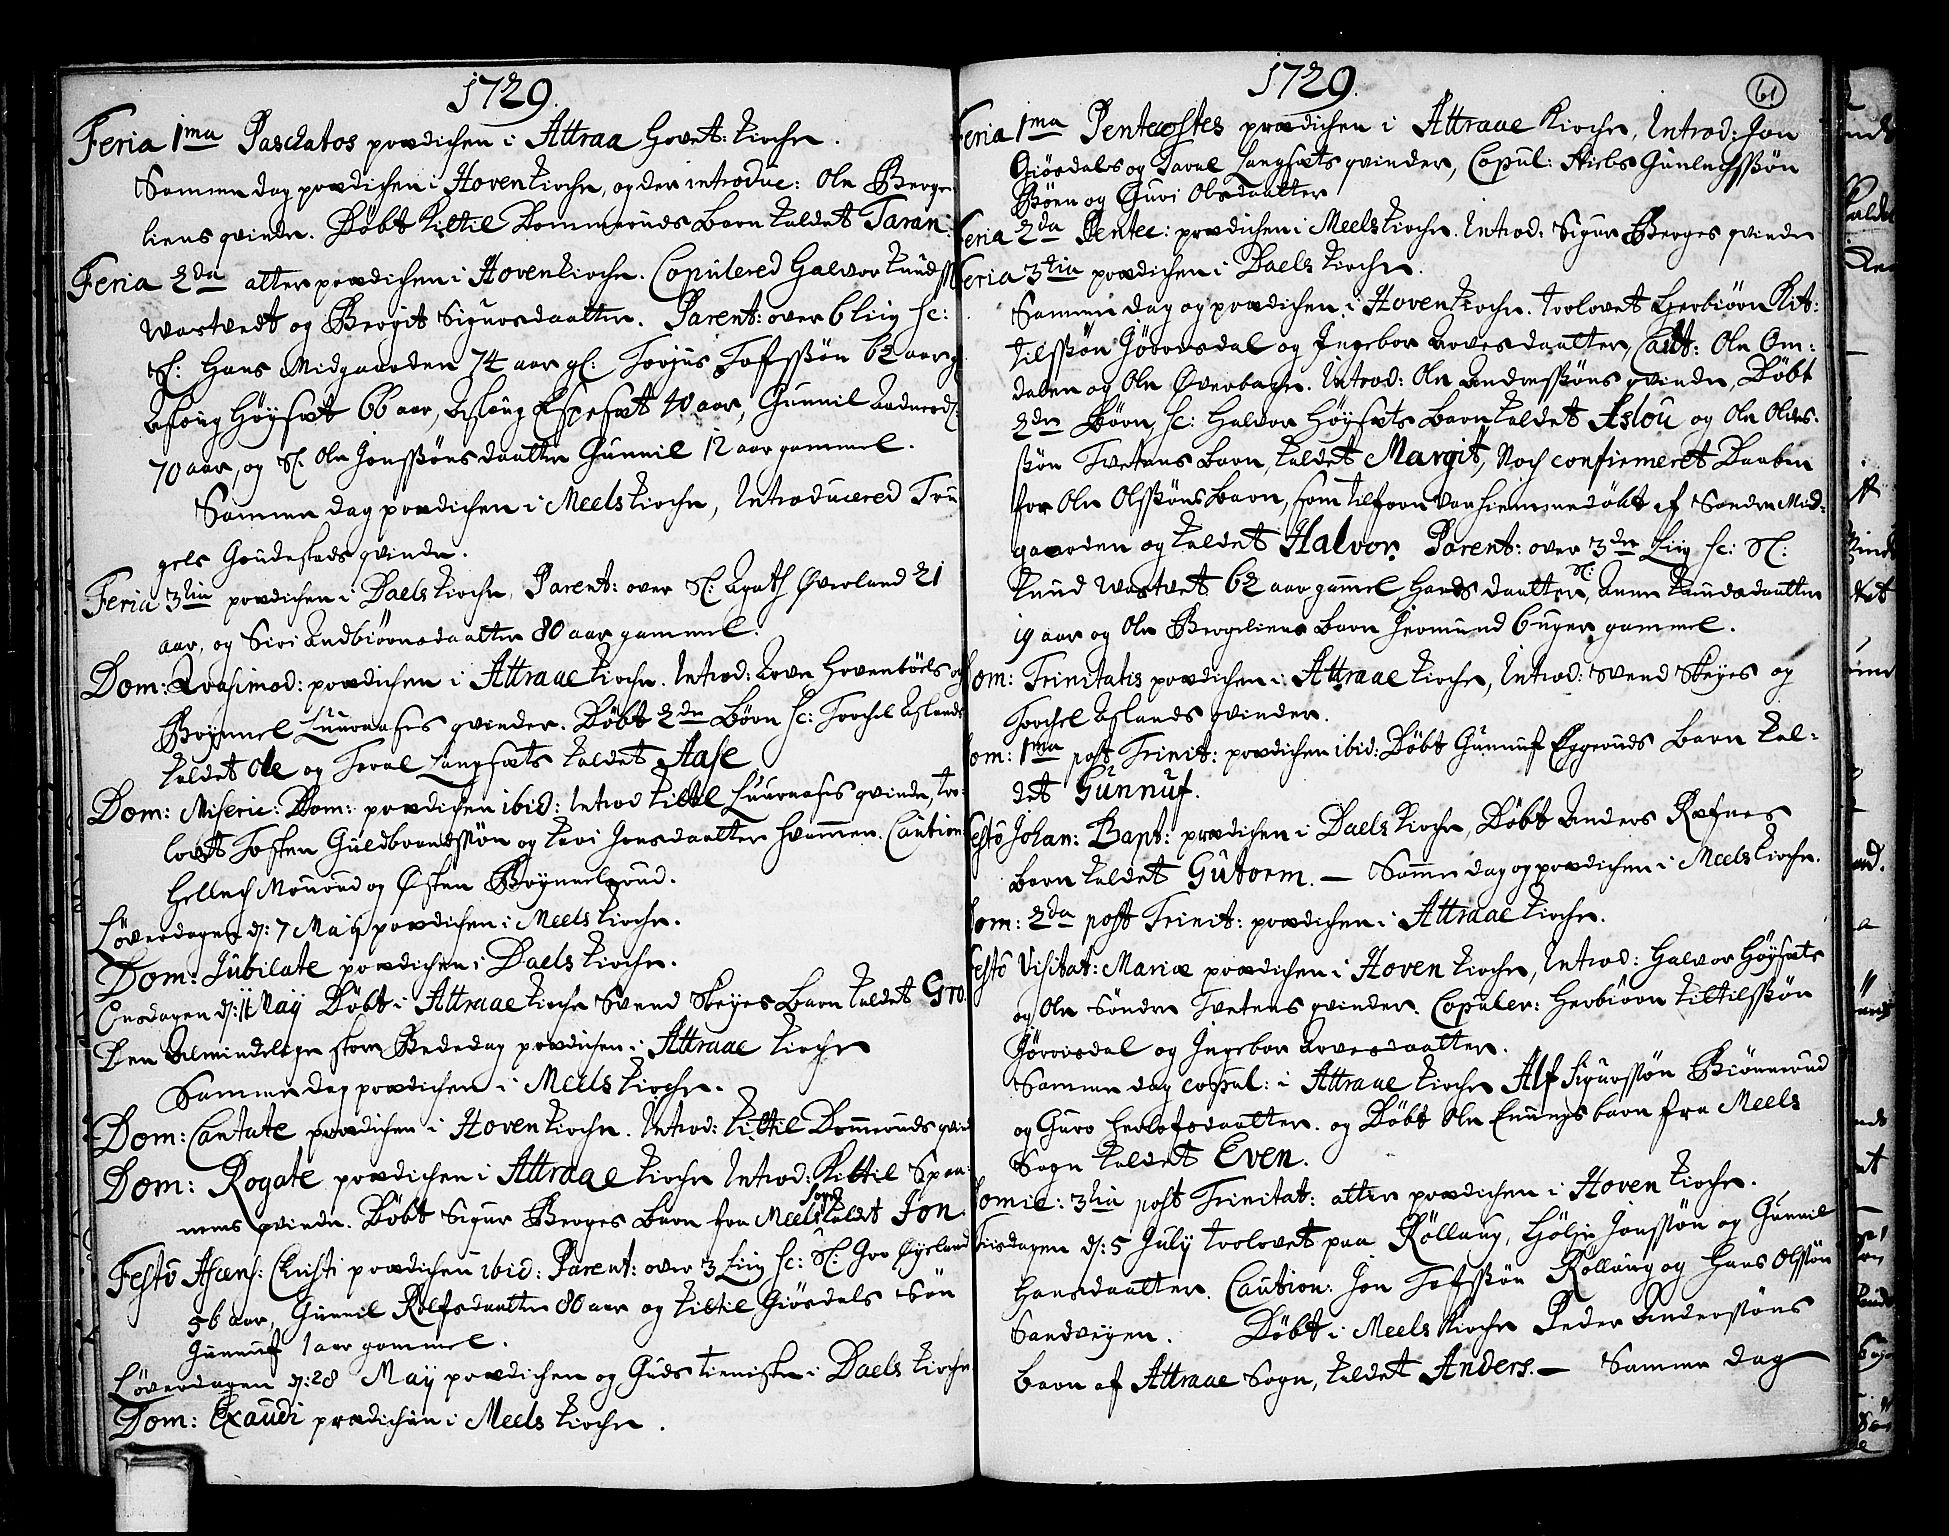 1729.
Feria 1ma Paschatos prædichen i Attraa Hovet: Kirche.
Samme dag prædichen i Hoven Kirche, og der introduc: Ole Berge
liens qvinde. Døbt Kittil Dommeruds barn kaldet Taran:
Feria 2da atter prædichen i Hoven Kirche. Copulered Halvor Knudss
Wastvedt og Bergit Sigursdaatter. Parent: over 6 liig sc:
Sl: Hans Midgaarden 74 aar gl: Torjus Tofssøn 62 aar g
Asloug Høysæt 66 aar, Asloug Espesæt 40 aar, Gunnil
70 aar, og Sl: Ole Jonssøns daatter Gunnil 12 aar gammel.
Samme dag prædichen i Meels Kirche, Introducered Tru
gels Goustads qvinde.
Feria 3tia prædichen i Daels Kirche, Parent: over Sl: Agath Øverland 21
aar, og Siri Andbiørnsdaatter 80 aar gammel.
Dom: Qvasimod: prædichen i Attraae Kirche. Introd: Aove Hovenbøls og
Brynnel Luuraases qvinder. Døbt 2de Børn sc: Torchel Aslands
kaldet Ole og Toval Langsæts kaldet Aase
Dom: Miseric: Dom: prædichen ibid: Introd Kittil Luuraases qvinde, tro-
lovet Tosten Guldbrandssøn og Kari Jonsdaatter Hvammen. Caution:
Hellech Mourud og Østen Brynnelsrud.
Løverdagen d: 7 Maij prædichen i Meels Kirche.
Dom: Jubilate prædichen i Daels Kirche.
Onsdagen d: 11 Maij Døbt i Attraae Kirche Svend Skeyes Barn kaldet Gro.
Den Almindelige store Bededag prædichen i Attraae Kirche
Samme dag prædichen i Meels Kirche.
Dom: Cantate prædichen i Hoven Kirche. Introd: Kittil Dommeruds qvind
Dom: Rogate prædichen i Attraae Kirche Introd: Kittil Spaa-
nens qvinde. Døbt Sigur Berges barn fra Meels Sogn kaldet Jon.
Festo Ascens: Christi prædichen ibid: Parent: over 3 Liig sc: Sl: Gro Øyeland
56 aar, Gunnil Rolfsdaatter 80 aar og Kittil Giøsdals Søn
Gunnuf 1 aar gammel.
Løverdagen d: 28 Maij prædichen og Guds tieniste i Daels Kirche
Dom: Exaudi prædichen i Meels Kirche.
1729.
61
Feria 1ma Pentecostes prædichen i Attraae Kirche, Introd: Jon
Giøsdals og Taral Langsæts qvinder, Copul: Niels Gunlechssøn
Bøen og Guri Olsdaatter
Feria 2da Pentec: prædichen i Meels Kirche. Introd: Sigur Berges qvinde
Feria 3tia prædichen i Daels Kirche.
Samme dag og prædichen i Hoven Kirche. trolovet Herbiørn Kit:
tilssøn Jøronsdal og Ingebor Aovesdaatter, Caut: Ole Om:
dalen og Ole Øverbagen. Introd: Ole Andressøns qvinde, Døbt
2de Børn, sc: Halvor Høysæts barn kaldet Aslou og Ole Olss-
søn Tvetens barn, kaldet Margit, Noch confirmeret Daaben
for Ole Olssøns Barn, som tilforn var hiemmedøbt af Søndre Mid-
gaarden og kaldet Halvor. Parent: over 3de Liig sc: Sl:
Knud Wastvet 62 aar gammel Hands daatter, Sl: Anne Knudsdaatter
19 aar og Ole Bergeliens barn Jermund 6 uger gammel.
Dom: Trinitatis prædichen i Attraae Kirche, Introd: Svend Skeyes og
Torchel Aslands qvinder.
Dom: 1ma post Trinit: prædichen ibid: Døbt Gunnuf Eggeruds barn kal-
det Gunnuf.
Festo Johan: Bapt: prædichen i Daels Kirche, Døbt Anders Refnes
barn kaldet Gutorm. — Samme dag og prædichen i Meels Kirche.
Dom: 2da post Trinit: prædichen i Attraae Kirche.
Festo Visitat: Mariæ prædichen i Hoven Kirche, Introd: Halvor Høysæts
og Ole Søndre Tvetens qvinder. Copuler: Herbiørn Kittilssøn
Jøronsdal og Ingebor Aovesdaatter.
Samme dag copul: i Attraae Kirche Alf Sigurssøn Biønnerud
og Guro Herlofsdaatter. og Døbt Ole Enungs barn fra Meels
Sogn kaldet Even.
Domic: 3tia post Trinitat: atter prædichen i Hoven Kirche.
Tiisdagen d: 5 July trolovet paa Rollaug, Hølje Jonssøn og Gunnil
Hansdaatter. Caution: Jon Tofssøn Rollaug og Hans Olssøn
Sandvigen. Døbt i Meels Kirche Peder Anderssøns
barn af Attraae Sogn, kaldet Anders. — Samme dag